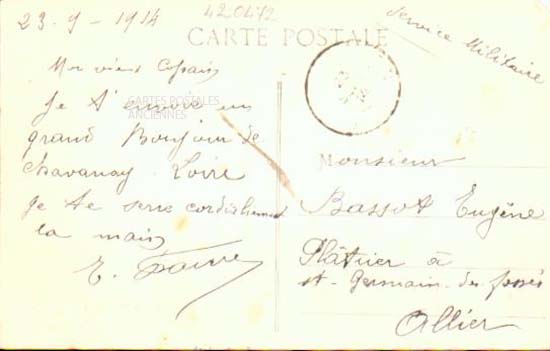 23-9-1914
420472
Service Militaire
CARTE POSTALE
Mon vieux Copain
Je t'envoie un
CARTES POSTALES
ANCIENNES
grand Bonjour de
Chavanay Loire
Je te serre cordialement
la main
E. Faure
Monsieur
Bassot Eugène
Plâtrier à
St-Germain-des-fossés
Allier